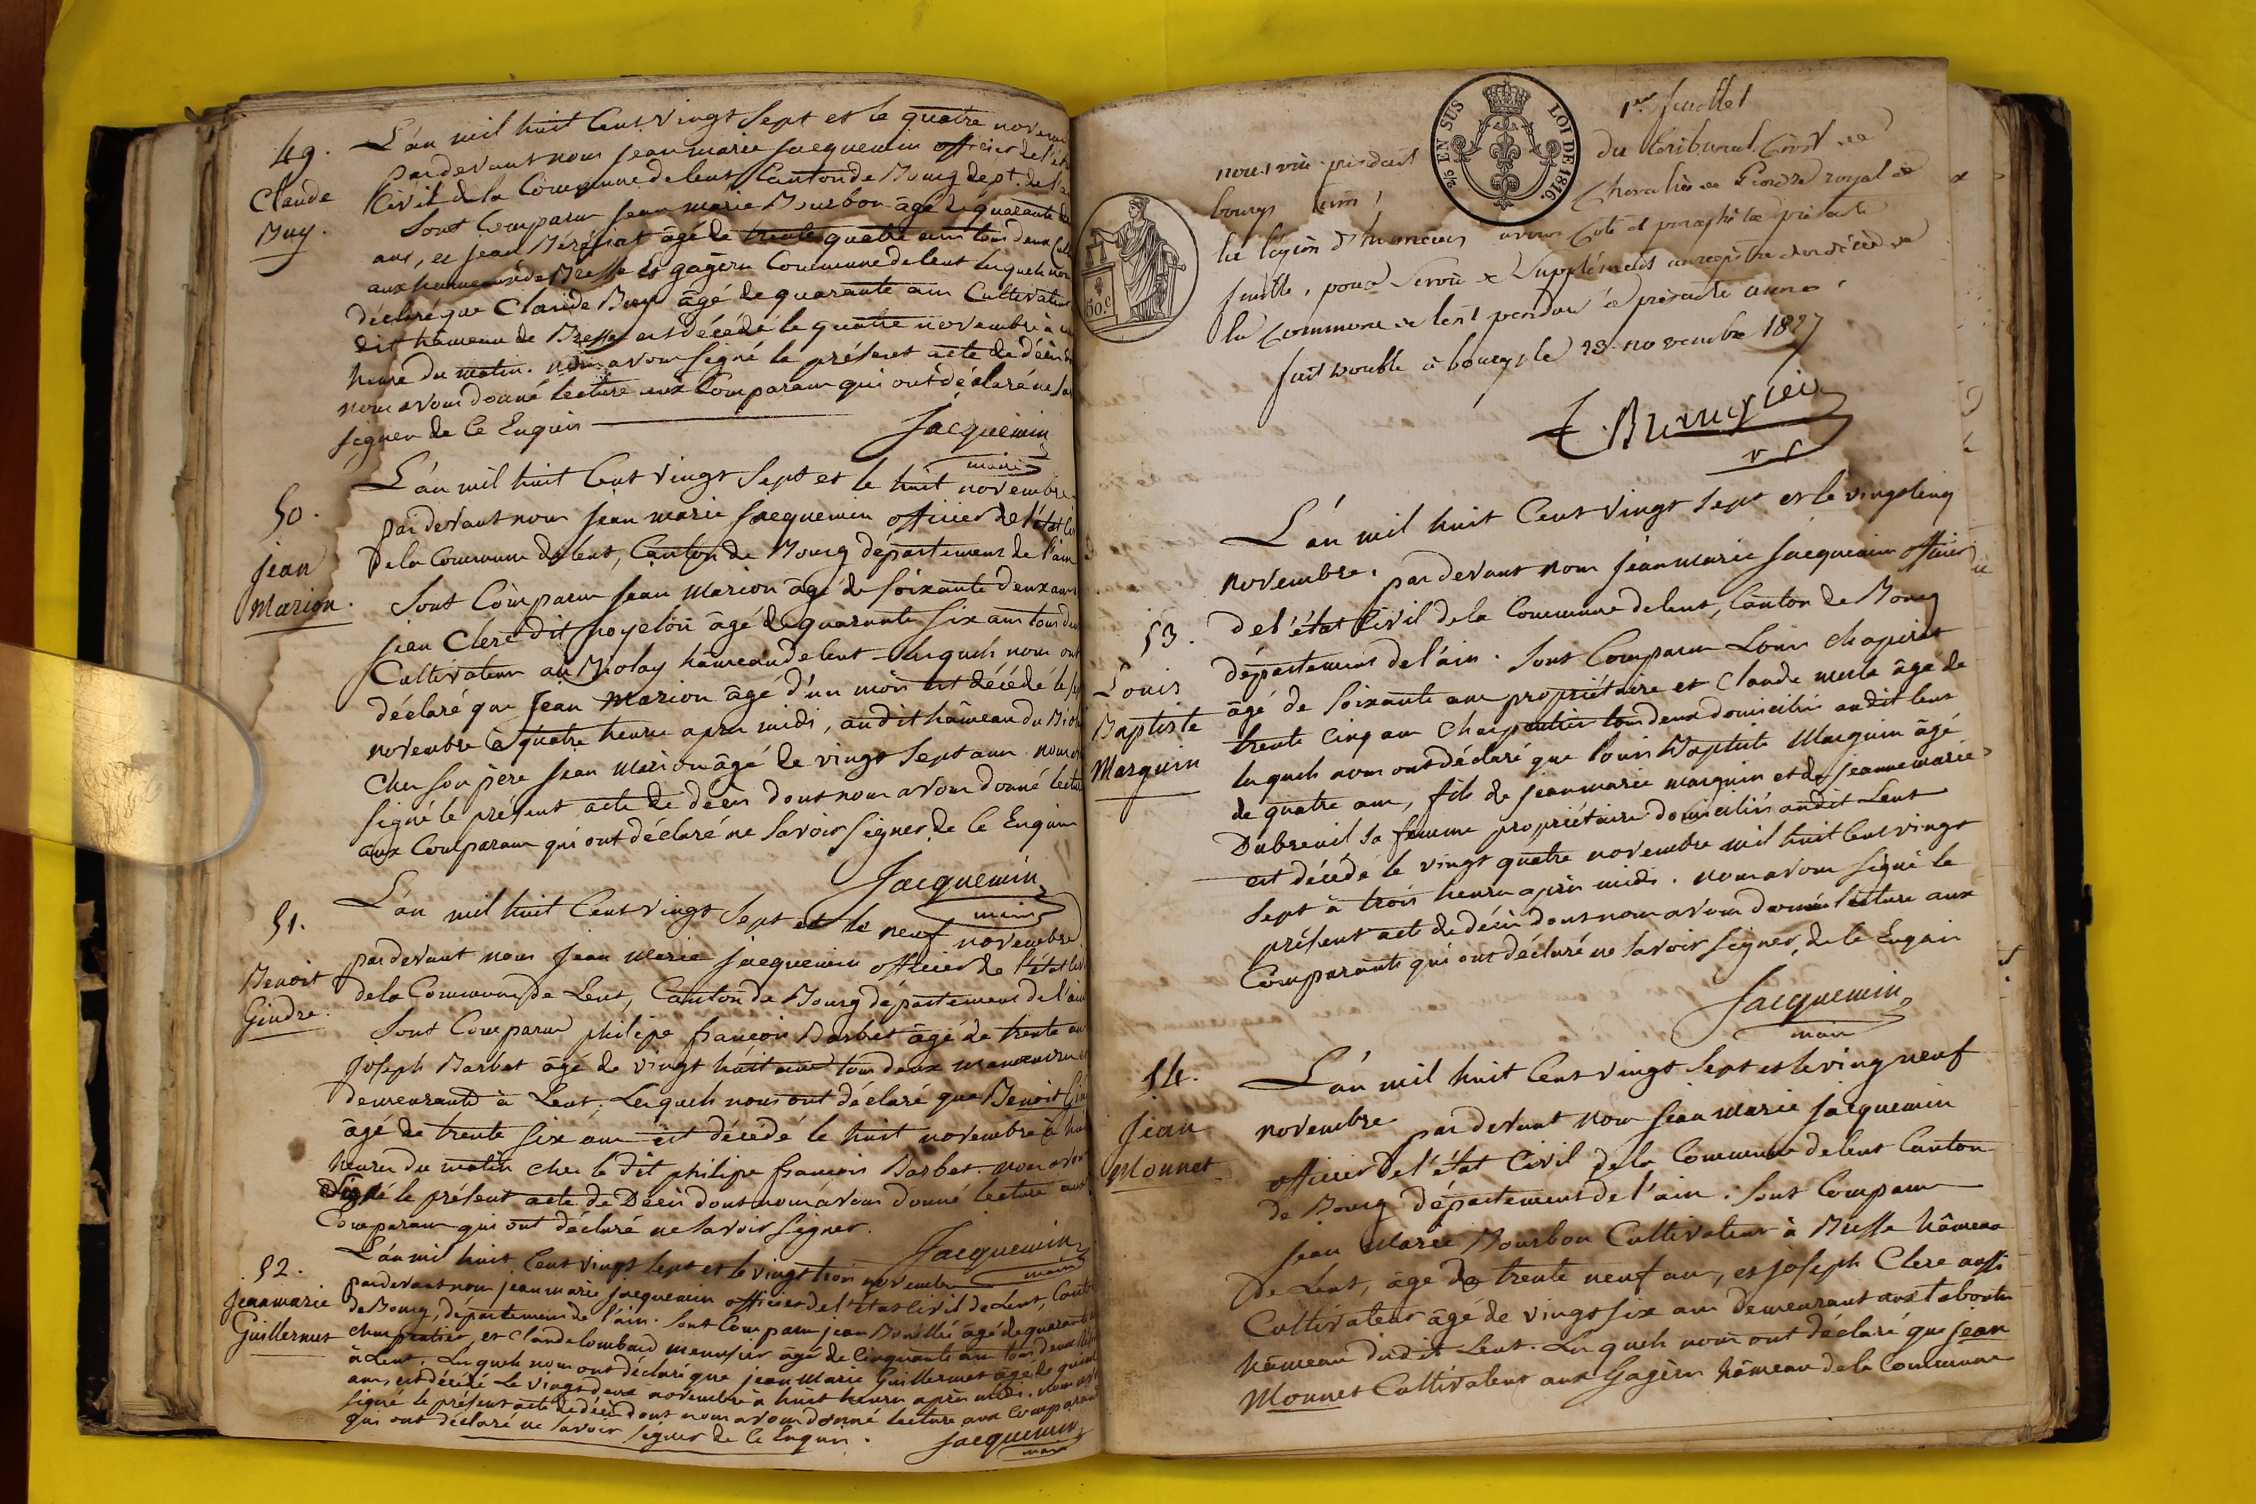 49.
Claude
Buy.
L'án mil huit Cent vingt Sept et le quatre novem
pardevant nous jean marie jacquemin officier de l'ét
Civil de la Commune de lent Canton de Bourg dept. de l'a
Sont Comparu Jean marie Bourbon âgé de quarante
ans, et jean âgé de trente quatre ans tous deux Cul
aux hameaux de Bresse et gagère Commune de lent lesquels nou
déclaré que Claude Buy âgé de quarante ans Cultivateur
dit hâmeau de Bresse est décédé le quatre novembre à
heure du matin. nous avons signé le présent acte de décès d
nous avons donné lecture aux Comparans qui ont déclaré ne Sa
signer de Ce Enquis
Jacquemin
maire
50.
jean
Marion.
L'án mil huit Cent vingt Sept et le huit novembre
par devant nous jean marie jacquemin officier de l'état Ci
De la Commune de lent, Canton de Bourg département de l'ain
Sont Comparu jean Marion âgé de soixante deux ans
jean Clerc dit âgé de quarante six ans tous deu
Cultivateur au Biolay hâmeau de lent lesquels nous ont
déclaré que jean Marion âgé d'un mois est décédé le sep
novembre à quatre heures apres midi, au dit hâmeau du Biola
Chez son père jean Marion âgé de vingt sept ans nous av
signé le présent acte de décès dont nous avons donné lectu
aux Comparans qui ont déclaré ne Savoir signer de Ce Enquis
Jacquemin
maire
51.
Benoit
Gindre.
L'án mil huit Cent vingt Sept et le neuf novembre
pardevant nous jean marie jacquemin officier de l'état Civ
de la Commune de Lent, Canton de Bourg département de l'ain
Sont Comparu philipe françois Barbet âgé de trente an
joseph Barbet âgé de vingt huit ans tous deux manoeuvres
demeurants à Lent; Lesquels nous ont déclaré que Benoit Gin
âgé de trente six ans est décédé le huit novembre à hui
heures du matin chez le dit philipe francois Barbet nous avon
signé le présent acte de Décès dont nous avons donné lecture aux
Comparans qui ont déclaré ne Savoir Signer.
Jacquemin
maire
52.
jean marie
Guillermet
L'án mil huit Cent vingt Sept et le vingt trois novembre
pardevant nous jean marie jacquemin officier de l'état Civil de Lent, Canto
de Bourg, département de l'ain. Sont Comparu jean âgé de quarante
charpentier, et Claude lombard menusier âgé de Cinquante ans tous deux
à Lent. Lesquels nous ont déclaré que jean Marie Guillermet âgé de
ans, est décédé le vingt deux novembre à huit heures après midi. nous av
signé le présent acte de décès dont nous avons donné lecture aux Comparans
qui ont déclaré ne Savoir signer de Ce Enquis.
Jacquemin
maire
1er feuillet
EN SUS
LOI DE 1816.
50c
nous vice président du tribunal Civil de
bourg (ain) Chevalier de l'ordre royal de
la légion d'honneur avons Coté et paraphé la présente
feuille, pour Servir de Supplément au registre des décès de
la Commune de lent pendant la présente année.
fait double à bourg le 23 novembre 1827
53.
Louis
Baptiste
Marguin
L'án mil huit Cent vingt Sept et le vingt Cinq
novembre. par devant nous jean marie jacquemin officier
de l'état Civil de la Commune de lent, Canton de Bourg
département de l'ain. Sont Comparu Louis
âgé de soixante ans propriétaire et Claude merle âgé de
trente Cinq ans Charpentier tous deux domiciliés au dit lent
lesquels nous ont déclaré que louis Baptiste Marguin âgé
de quatre ans, fils de jean marie marguin et de jeanne marie
Dubreuil sa femme propriétaire domiciliés au dit Lent
est décédé le vingt quatre novembre mil huit Cent vingt
Sept à trois heures après midi. nous avons Signé le
présent acte de décès dont nous avons donné lecture aux
Comparants qui ont déclaré ne Savoir signer, de Ce Enquis
Jacquemin
maire
54.
jean
Monnet
L'án mil huit Cent vingt Sept et le ving neuf
novembre par devant nous jean marie jacquemin
officier de l'état Civil de la Commune de lent Canton
de Bourg département de l'ain. Sont Comparu
jean Marie Bourbon Cultivateur à Bresse hâmeau
de Lent, âgé de trente neuf ans, et joseph Clerc aussi
Cultivateur âgé de vingt six ans demeurant aux
hâmeau dudit Lent. Lesquels nous ont déclaré que jean
Monnet Cultivateur aux Gagères hâmeau de la Commune